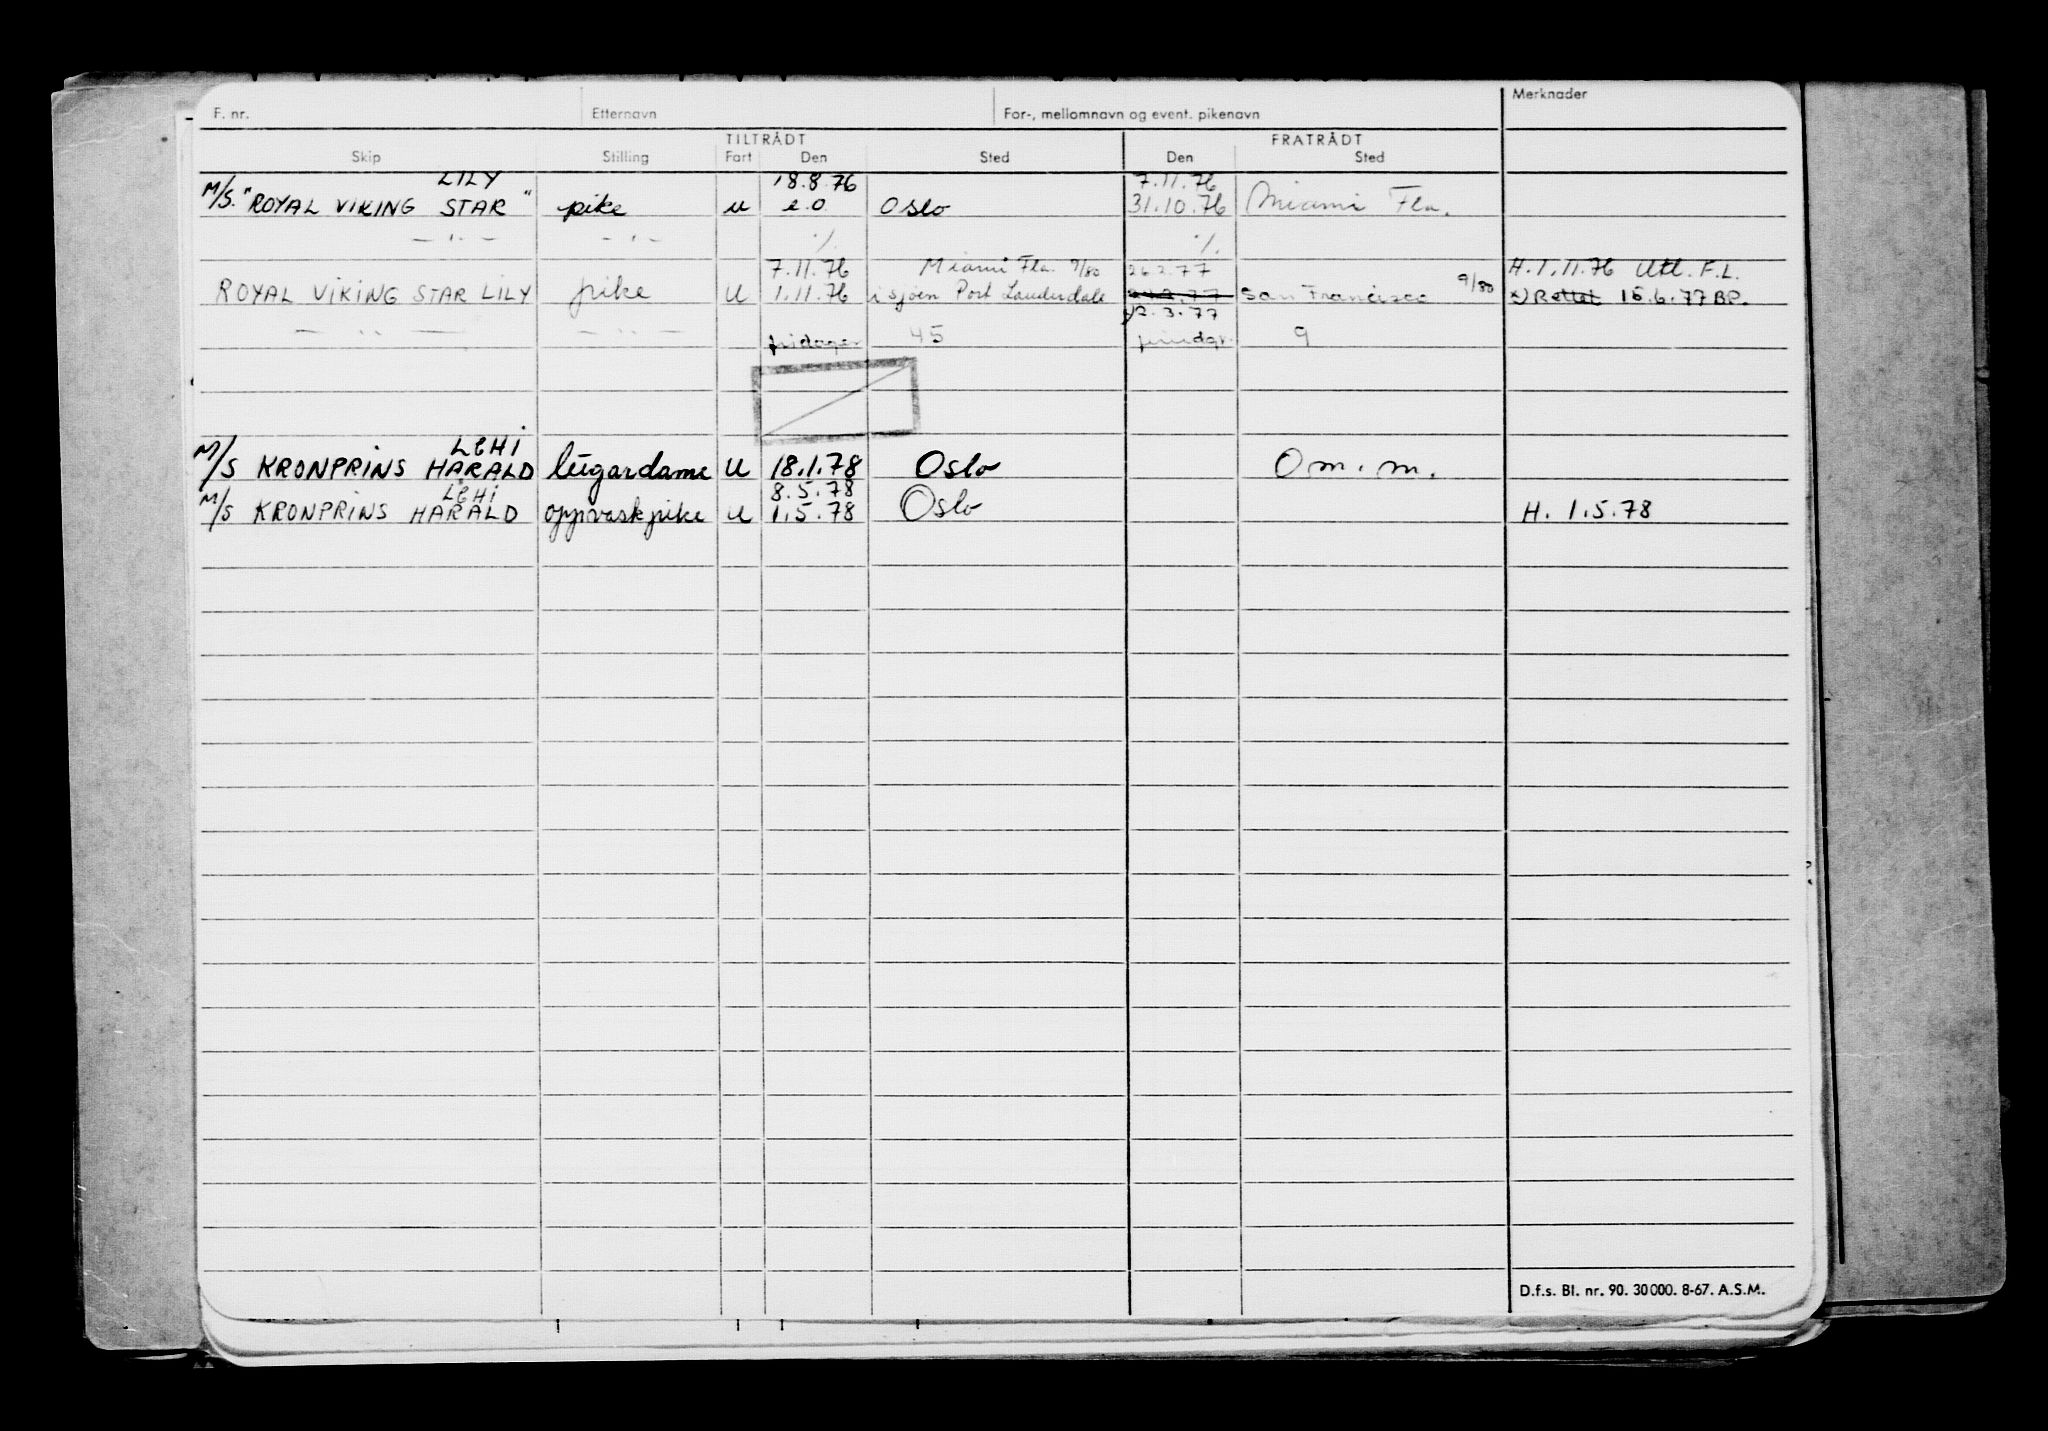 F. nr. Etternavn For-, mellomnavn og event. pikenavn Merknader
TILTRÅDT FRATRÅDT
Skip Stilling Fart Den Sted Den Sted
LILY 18.8.76 7.11.76
M/S. "ROYAL VIKING STAR" pike u e.o. Oslo 31.10.76 Miami Fla.
— " — — " — ./. ./.
7.11.76 Miami Fla. 9/80 26.2.77 H. 1.11.76 Utl. F.L.
ROYAL VIKING STAR LILY pike u 1.11.76 i sjøen Port Lauderdale San Francisco 9/80 x) Rettet 15.6.77 BP.
x) 2.3.77
— " — — " — fridager 45 9
LEHI
M/S KRONPRINS HARALD lugardame u 18.1.78 Oslo O m. m.
LEHI 8.5.78
M/S KRONPRINS HARALD oppvaskpike u 1.5.78 Oslo H. 1.5.78
D.f.s. Bl. nr. 90. 30 000. 8-67. A.S.M.